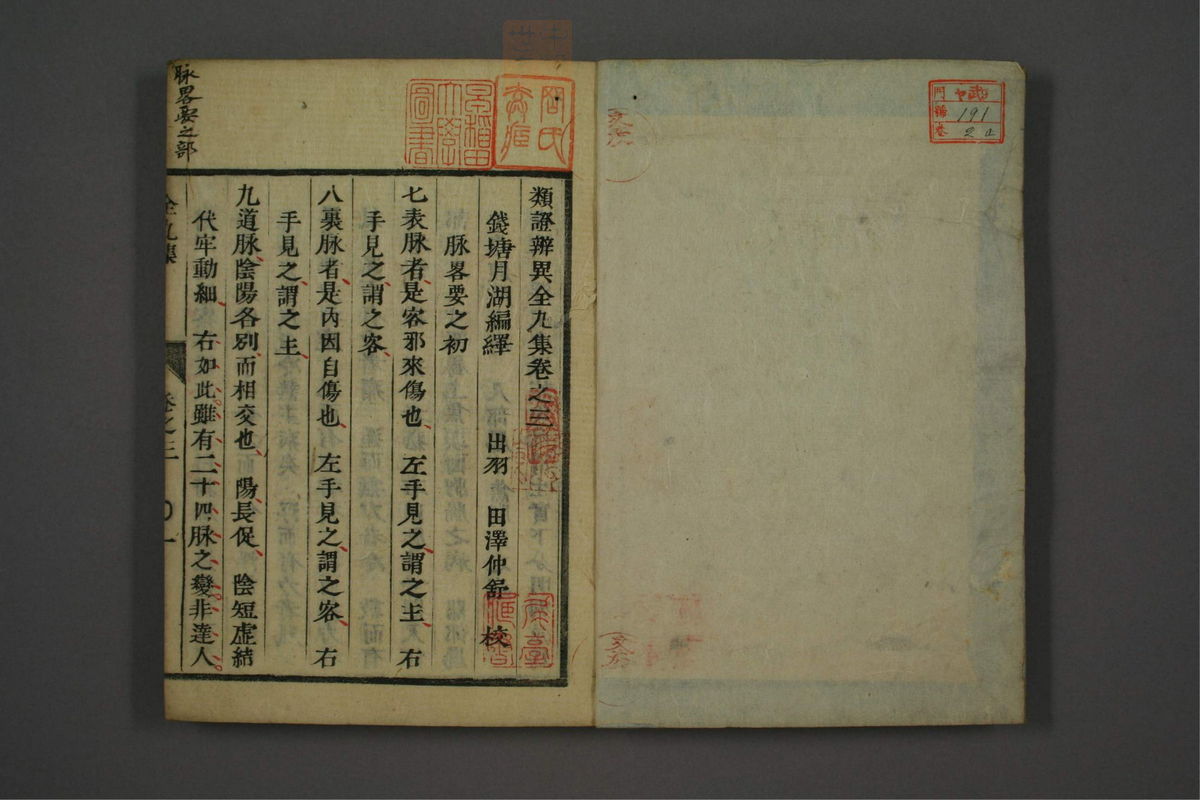 門 ヤ09
號 191
卷 2止
類證辨異全九集卷之三
錢塘月湖編繹 出羽 田澤仲舒 校
脉畧要之初
七表脉者是客邪來傷也左手見之謂之主右
手見之謂之客
八裏脉者是內因自傷也左手見之謂之客右
手見之謂之主
九道脉陰陽各別而相交也陽長促陰短虛結
代牢動細右如此雖有二十四脉之變非達人
全九集 卷之三 〇一
脉畧要之部
早稻田大學圖書